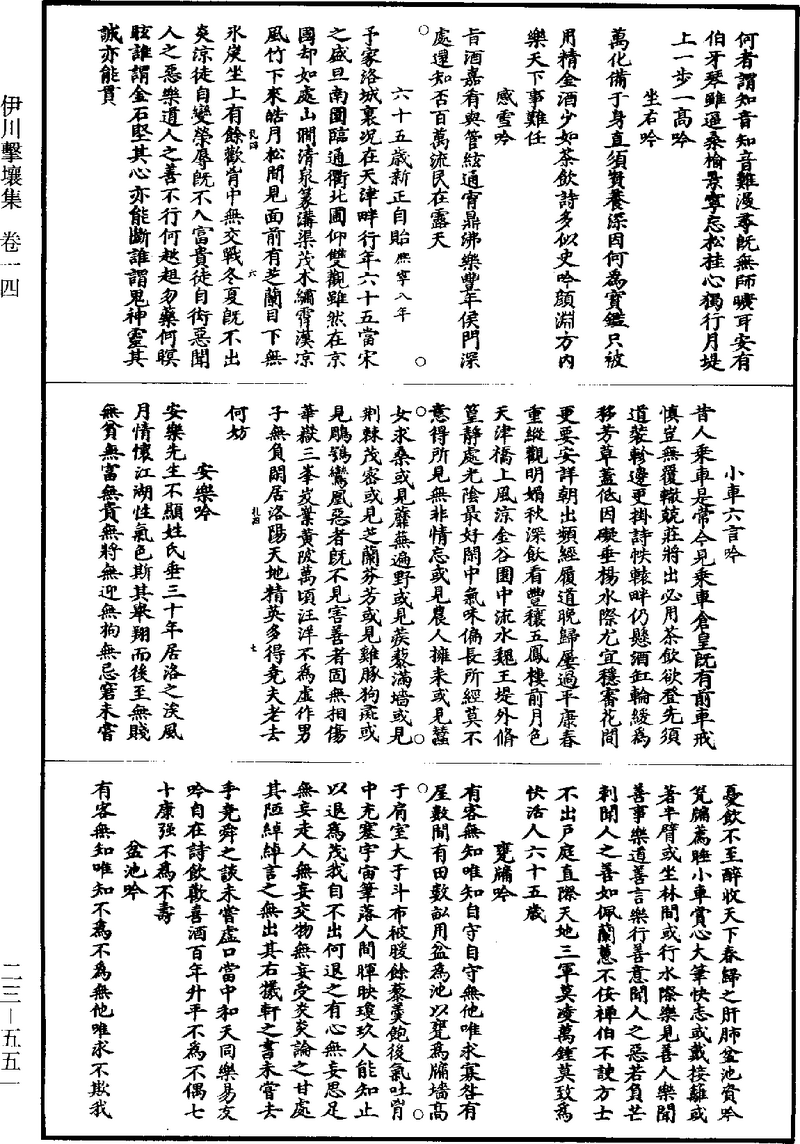 何者謂知音知音難漫尋既無師曠耳安有
伯牙琴雖逼桑榆景寧忘松桂心獨行月堤
上一步一高吟
坐右吟
萬化備于身直須資養深因何為寶鑑只被
用精金酒少如茶飲詩多似史吟顏淵方內
樂天下事難任
感雪吟
旨酒嘉肴與管絃通宵鼎沸樂豐年侯門深
處還知否百萬流民在露天
六十五歲新正自貽熙寧八年
予家洛城裏況在天津畔行年六十五當宋
之盛旦南園臨通衢北圃仰雙觀雖然在京
國却如處山澗清泉篆溝渠茂木繡霄漢涼
風竹下來皓月松間見面前有芝蘭目下無
冰炭坐上有餘歡胷中無交戰冬夏既不出
炎涼徒自變榮辱既不入富貴徒自衒惡聞
人之惡樂道人之善不行何趑趄勿藥何瞑
眩誰謂金石堅其心亦能斷誰謂鬼神靈其
誠亦能貫
孔海 六
小車六言吟
昔人乘車是常今見乘車倉皇既有前車戒
慎豈無覆轍兢莊將出必用茶飲欲登先須
道裝軫邊更掛詩帙轅畔仍懸酒缸輪緩為
移芳草蓋低因礙垂楊水際尤宜穩審花間
更要安詳朝出頻經履道晚歸屢過平康春
重縱觀明媚秋深飲看豐穰五鳳樓前月色
天津橋上風涼金谷園中流水魏王堤外脩
篁靜處光陰最好閑中氣味偏長所經莫不
意得所見無非情忘或見農人擁耒或見蠶
女求桑或見蘼蕪遍野或見蒺藜滿墻或見
荆棘茂密或見芝蘭芬芳或見雞豚狗彘或
見鵰鶚鸞凰惡者既不見害善者固無相傷
華嶽三峯岌嶪黃陂萬頃汪洋不為虛作男
子無負閑居洛陽天地精英多得堯夫老去
何妨
孔海 七
安樂吟
安樂先生不顯姓氏垂三十年居洛之涘風
月情懷江湖性氣色斯其舉翔而後至無賤
無貧無富無貴無將無迎無拘無忌窘未嘗
憂飲不至醉收天下春歸之肝肺盆池資吟
甕牖薦睡小車賞心大筆快志或戴接䍦或
著半臂或坐林間或行水際樂見善人樂聞
善事樂道善言樂行善意聞人之惡若負芒
刺聞人之善如佩蘭蕙不佞禪伯不諛方士
不出戶庭直際天地三軍莫凌萬鍾莫致為
快活人六十五歲
甕牖吟
有客無知唯知自守自守無他唯求寡咎有
屋數間有田數畝用盆為池以甕為牖墻高
于肩室大于斗布被暖餘藜羹飽後氣吐胷
中充塞宇宙筆落人間暉映瓊玖人能知止
以退為茂我自不出何退之有心無妄思足
無妄走人無妄交物無妄受炎炎論之甘處
其陋綽綽言之無出其右羲軒之書未嘗去
手堯舜之談未嘗虛口當中和天同樂易友
吟自在詩飲歡喜酒百年升平不為不偶七
十康强不為不壽
盆池吟
有客無知唯知不為不為無他唯求不欺我
伊川擊壤集 卷一四
二三—五五一